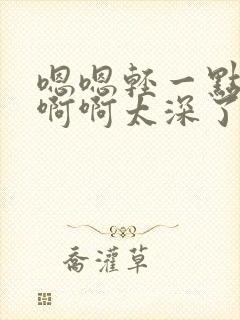 嗯嗯輕一點
啊啊太深了
喬灌草